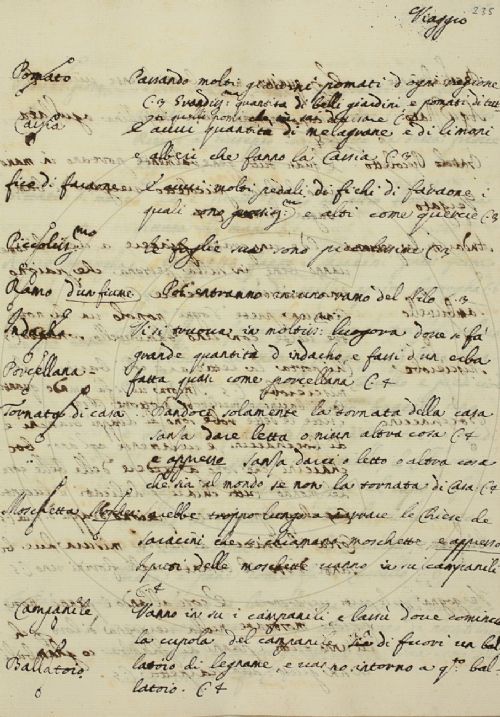 235
Viaggio
Pomato Passando molti giardini pomati d'ogni ragione
C 3 Grandiss:ma quantità di belli giardini, e pomati di tut
ti quelli pomi che C
Cassia E avvi quantità di melagrane e di limoni
e alberi che fanno la Cassia C 3
fico di faraone E molti pedali di fichi di faraone i
quali sono e alti come quercie C 3
Piccoliss:mo le foglie sono piccolissime C 3
Ramo d'un fiume Poi entranno in uno ramo del Nilo C 3
Indacho Ivi si truova in moltiss: luogora dove si fa
grande quantità d'indacho, e fassi d'un erba
Porcellana fatta quasi come porcellana C 4
Tornata di casa Dandoci solamente la tornata della casa
sanza dare letto o niun altra cosa C 4
e appresso sanza darci o letto o altra cosa
che sia al mondo se non la tornata di Casa C 4
Moschetta Moschea sarebbe troppo lungo a le Chiese de
saracini che si chiamano moschette, e appresso
I preti delle moschette vanno in su i campanili
C 4
Campanile Vanno in su i campanili e lassù dove comincia
la cupola del campanile si è di fuori un bal
Ballatoio latoio di legname, e vanno intorno a q.to bal
latoio. C 4